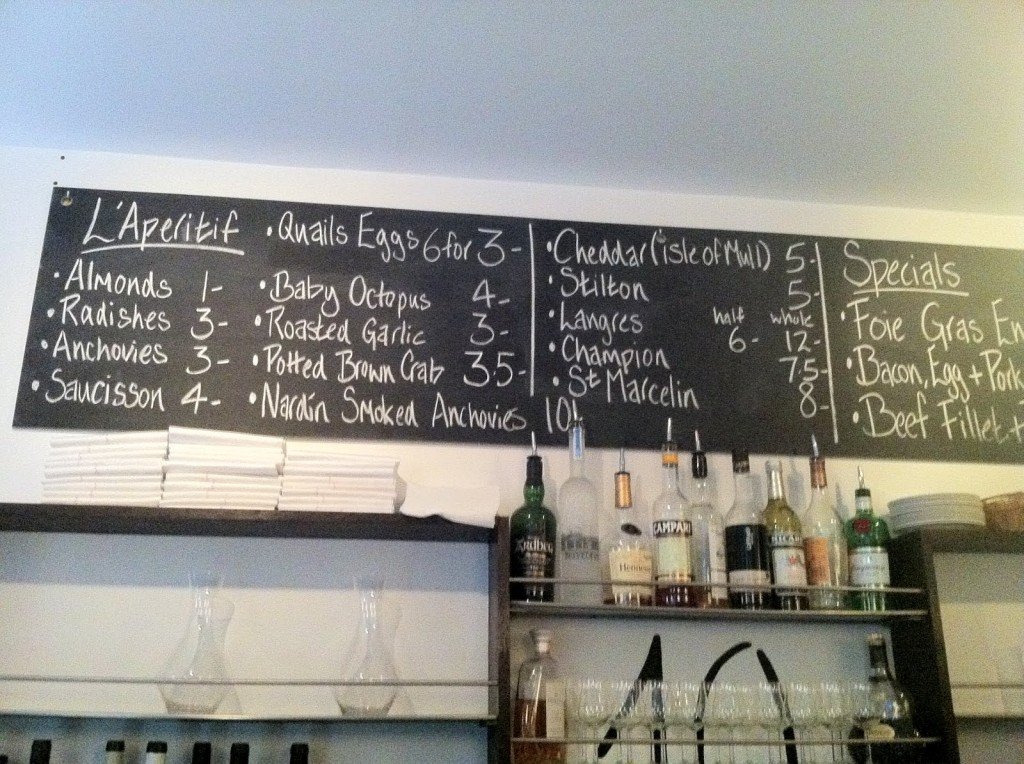 L'Aperitif
• Almonds 1-
• Radishes 3-
• Anchovies 3-
• Saucisson 4-
• Quails Eggs 6 for 3-
• Baby Octopus 4-
• Roasted Garlic 3-
• Potted Brown Crab 3.5-
• Nardín Smoked Anchovies 10
• Cheddar (isle of Mull) 5-
• Stilton 5-
half whole
• Langres 6- 12-
• Champion 7.5-
• St Marcelin 8-
Specials
• Foie Gras En
• Bacon, Egg + Pork
• Beef Fillet +
Ardbeg
Hennessy
CAMPARI